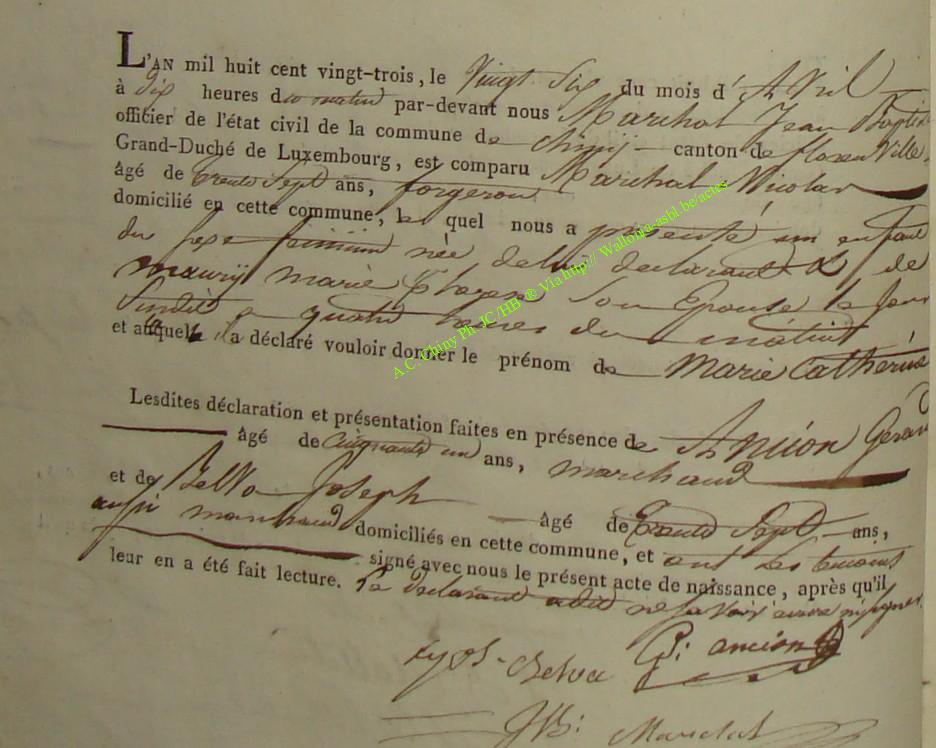 L'AN mil huit cent vingt-trois, le Vingt Six du mois d'Avril
à dix heures du matin par-devant nous Marchal Jean Baptis
officier de l'état civil de la commune de chiny canton de florenville,
Grand-Duché de Luxembourg, est comparu Marchal Nicolas
âgé de trente Sept ans, forgeron
domicilié en cette commune, le quel nous a présenté un enfant
du sexe feminin née de lui declarant & de
maury marie son Epouse le jour
Susdit a quatre heures du matin
et auquel il a déclaré vouloir donner le prénom de Marie Catherine
Lesdites déclaration et présentation faites en présence de Ancion Gerard
âgé de cinquante un ans, marchand
et de Joseph âgé de trente Sept ans,
aussi marchand domiciliés en cette commune, et ont les temoins
signé avec nous le présent acte de naissance, après qu'il
leur en a été fait lecture. Le declarant a dit ne savoir signer
G: ancion
JB: Marchal
A.C. Chiny Ph JC /HB ® Via http:// Wallonia-asbl.be/actes